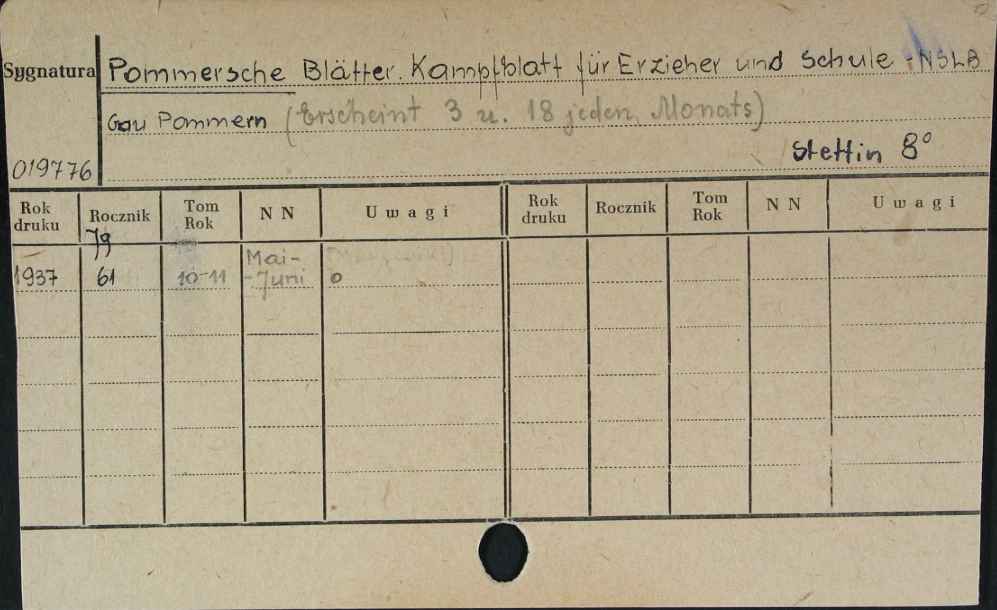 Sygnatura Pommersche Blätter. Kampfblatt für Erzieher und Schule - NSLB
Gau Pommern (Erscheint 3 u. 18 jeden Monats)
019776 Stettin 8°
Rok druku Rocznik Tom Rok N N Uwagi Rok druku Rocznik Tom Rok N N Uwagi
Jg
1937 61 10-11 Mai-
-Juni o